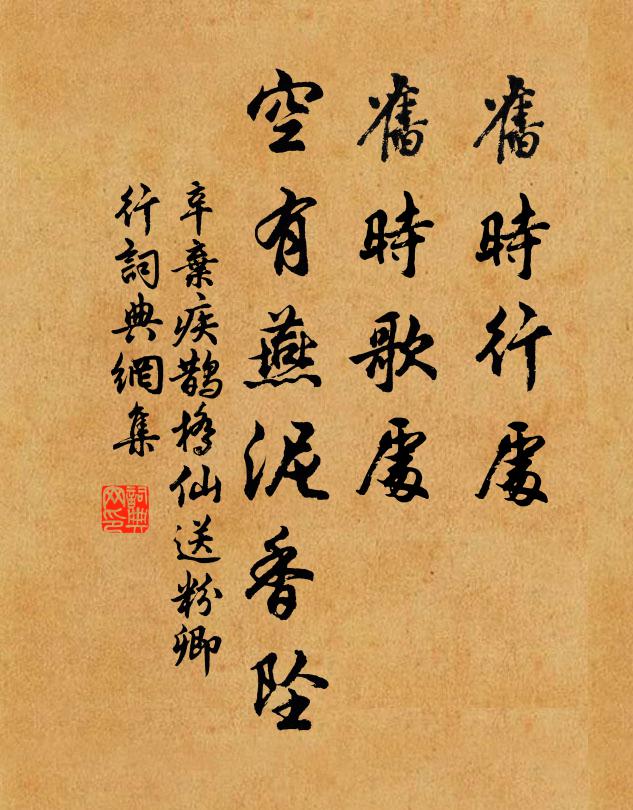 舊時行處
舊時歌處
空有燕泥香坠
辛棄疾鵲橋仙送粉卿
行詞典網集
詞典网印